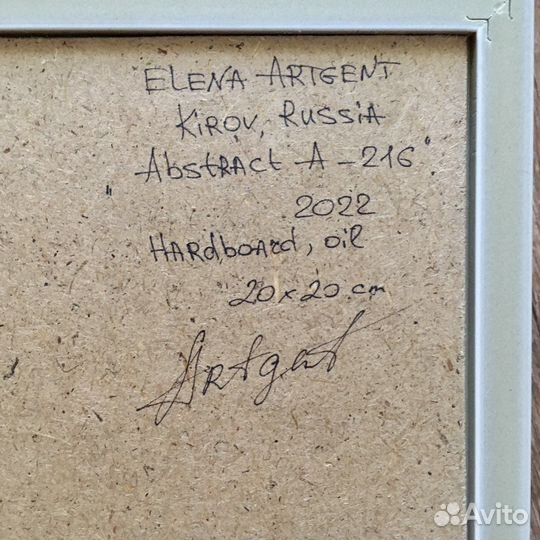 ELENA ARTGENT
KIROV, RUSSIA
"Abstract A-216"
2022
HARdboard, oil
20x20 cm
Artgent
Avito